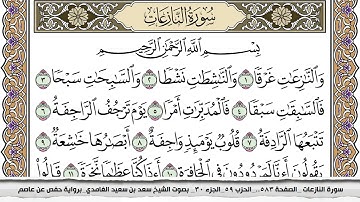 سُورَةُ النَّازِعَاتِ
بِسْمِ اللَّهِ الرَّحْمَٰنِ الرَّحِيمِ
وَالنَّازِعَاتِ غَرْقًا ١ وَالنَّاشِطَاتِ نَشْطًا ٢ وَالسَّابِحَاتِ سَبْحًا ٣
فَالسَّابِقَاتِ سَبْقًا ٤ فَالْمُدَبِّرَاتِ أَمْرًا ٥ يَوْمَ تَرْجُفُ الرَّاجِفَةُ ٦
تَتْبَعُهَا الرَّادِفَةُ ٧ قُلُوبٌ يَوْمَئِذٍ وَاجِفَةٌ ٨ أَبْصَارُهَا خَاشِعَةٌ ٩
يَقُولُونَ أَءِنَّا لَمَرْدُودُونَ فِي الْحَافِرَةِ ١٠ أَءِذَا كُنَّا عِظَامًا نَّخِرَةً ١١ قَالُوا
سورة النازعات _ الصفحة ٥٨٣ _ الحزب ٥٩ _ الجزء ٣٠ _ بصوت الشيخ سعد بن سعيد الغامدي _ برواية حفص عن عاصم